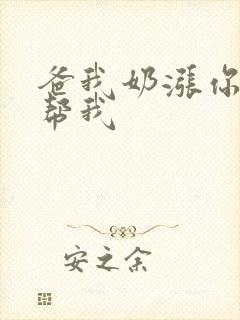 爸我奶涨你
帮我
安之余